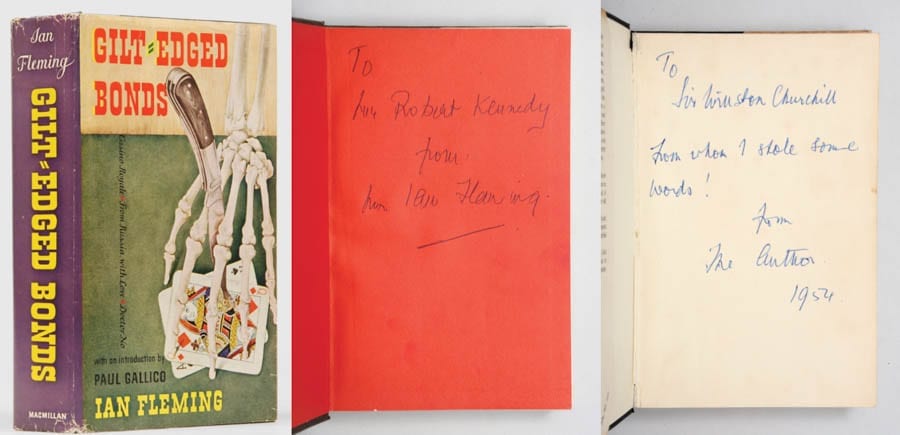 Ian
Fleming
GILT-EDGED BONDS
MACMILLAN
GILT-EDGED
BONDS
Casino Royale · From Russia, with Love · Doctor No
with an introduction by
PAUL GALLICO
IAN FLEMING
To
Robert Kennedy
from.
Ian Fleming.
To
Sir Winston Churchill
From whom I stole some
words!
from
The Author.
1954